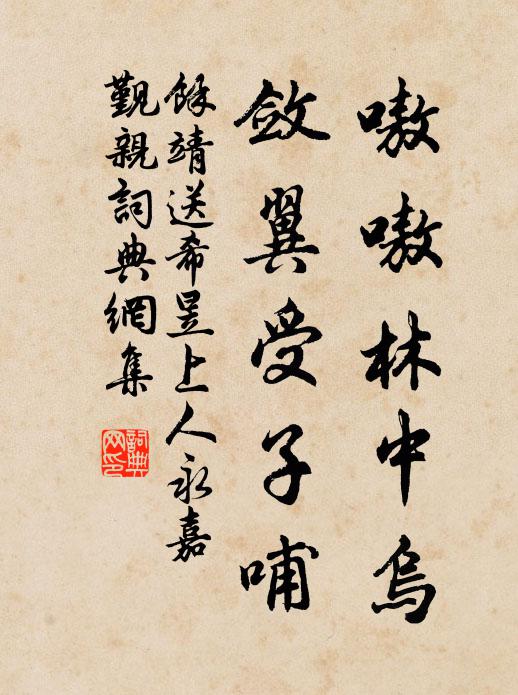 嗷嗷林中烏
斂翼受子哺
餘靖送希昱上人永嘉
覲親詞典網集
詞典网印